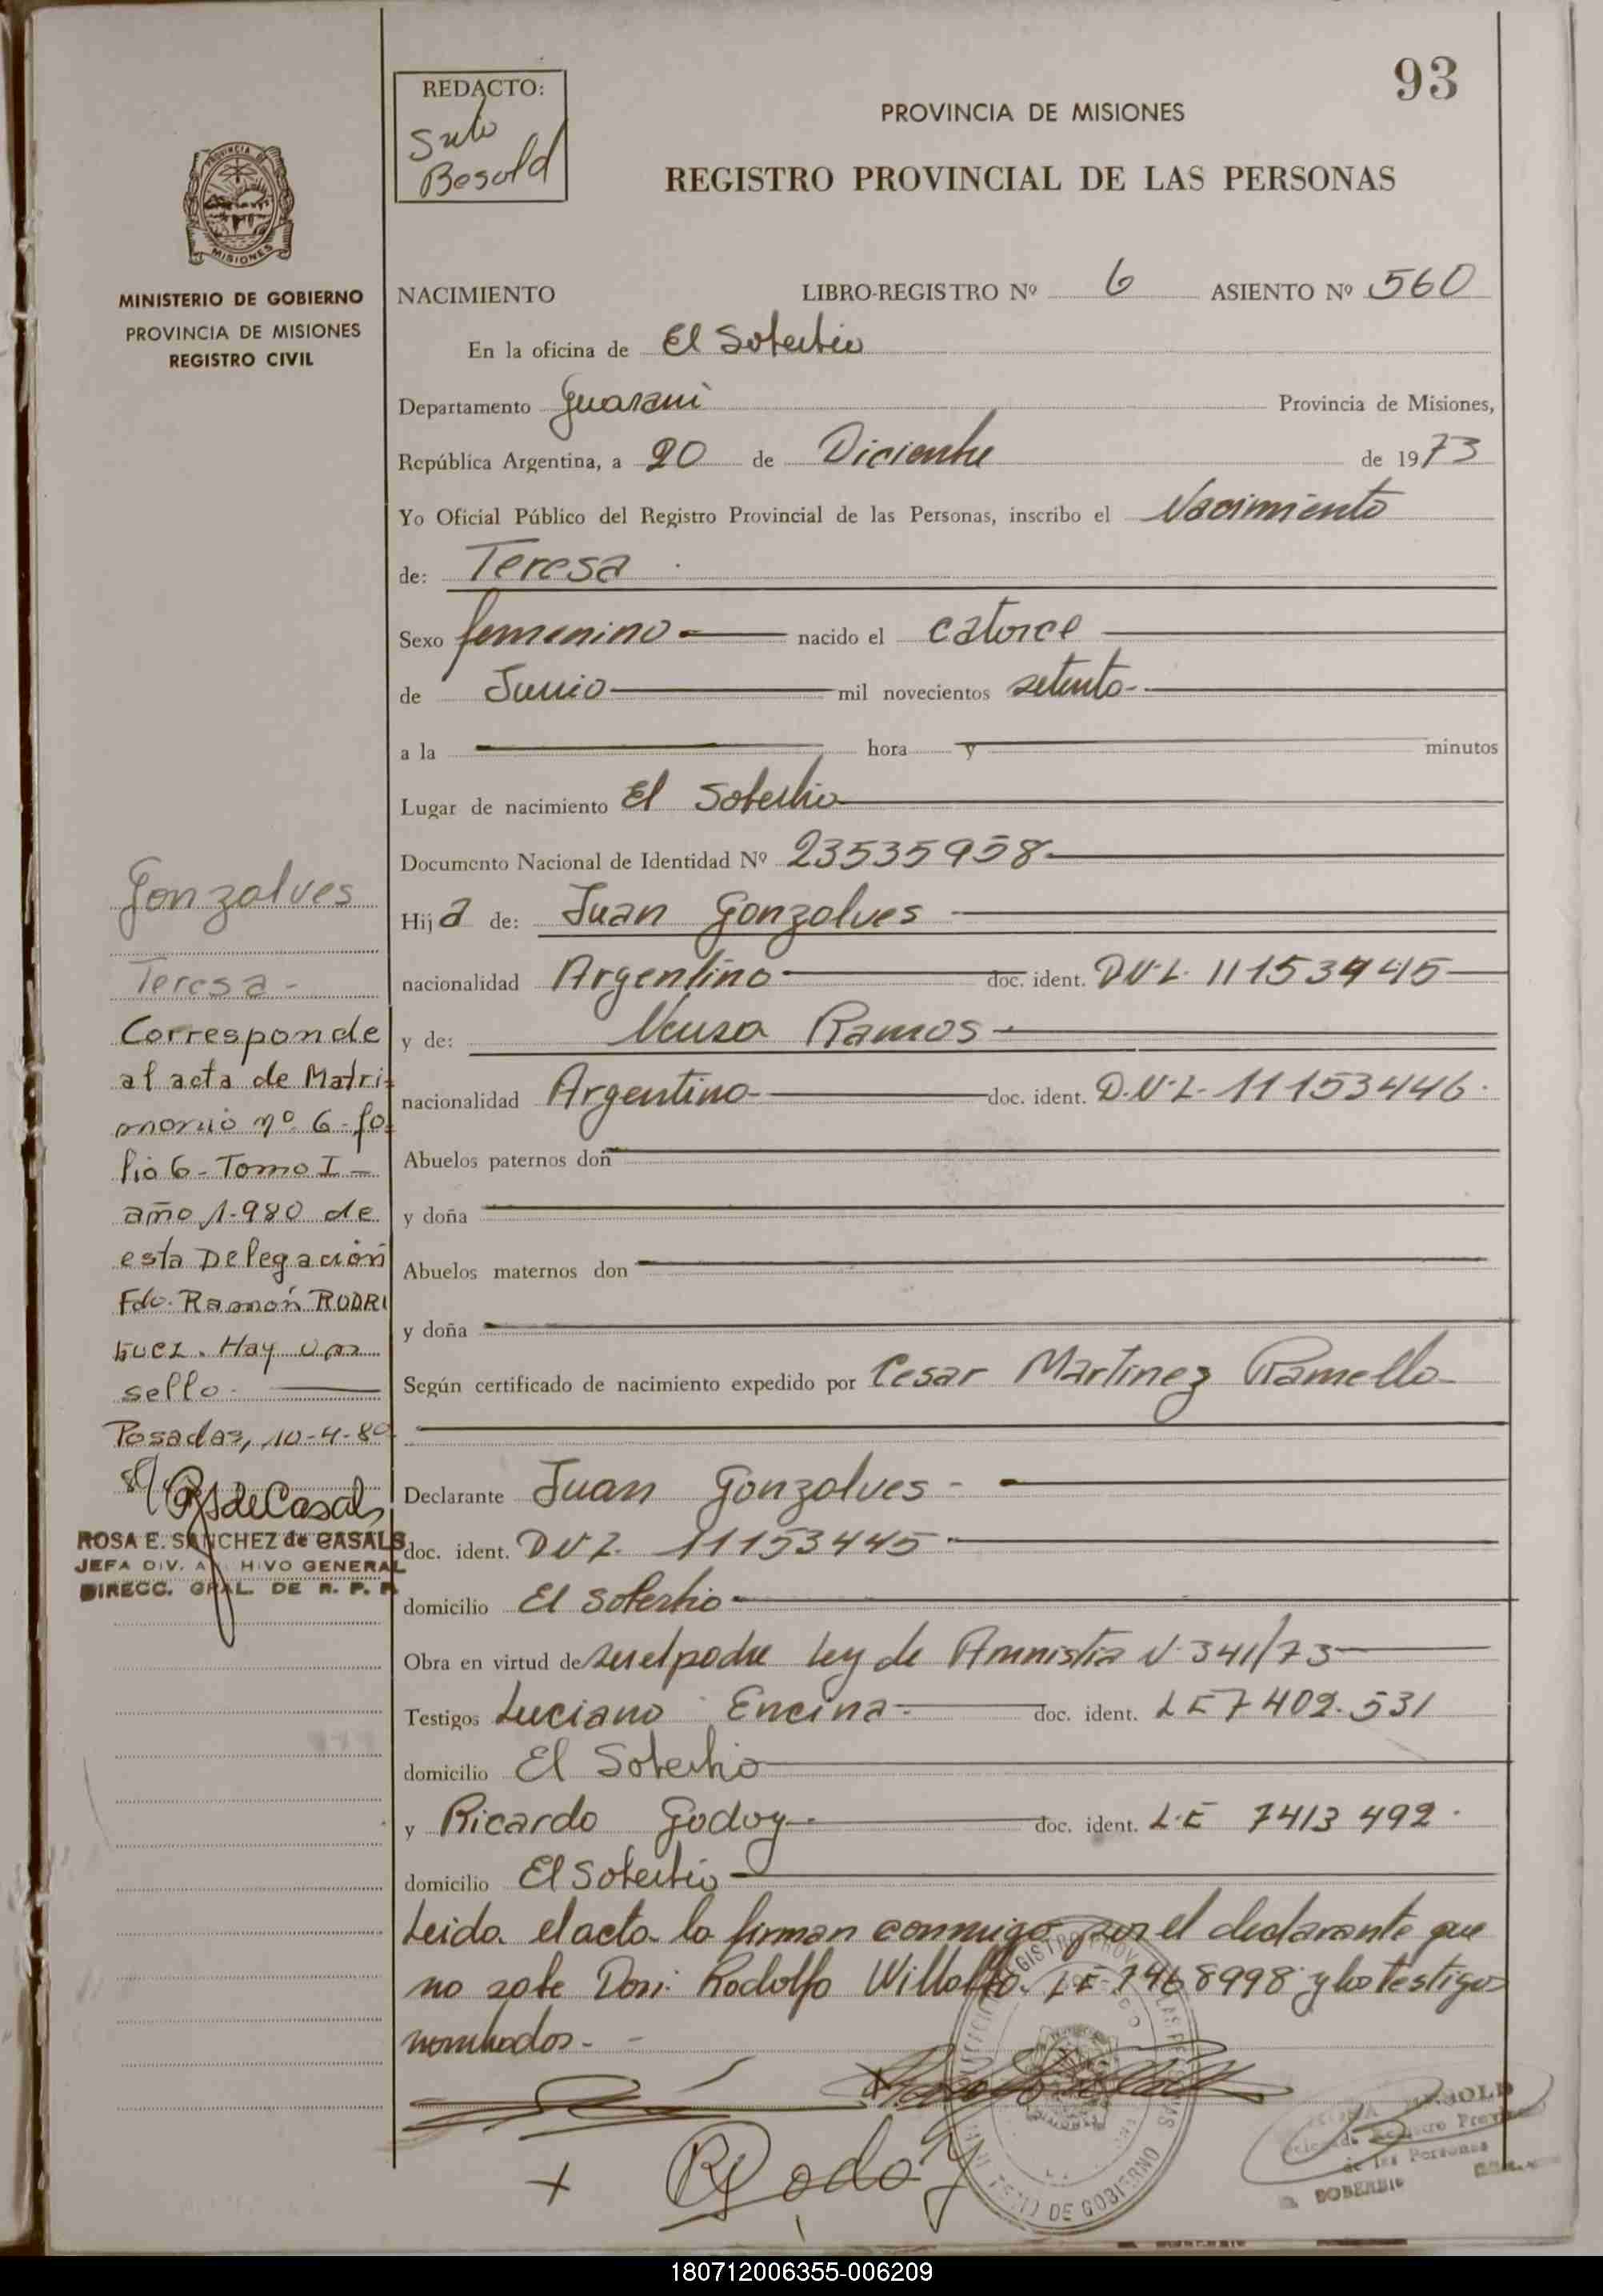 93
REDACTO:
Besold
PROVINCIA DE MISIONES
REGISTRO PROVINCIAL DE LAS PERSONAS
PROVINCIA DE
MISIONES
MINISTERIO DE GOBIERNO
PROVINCIA DE MISIONES
REGISTRO CIVIL
NACIMIENTO LIBRO-REGISTRO Nº 6 ASIENTO Nº 560
En la oficina de El Soberbio
Departamento Guarani Provincia de Misiones,
República Argentina, a 20 de Diciembre de 1973
Yo Oficial Público del Registro Provincial de las Personas, inscribo el Nacimiento
de: Teresa
Sexo femenino nacido el catorce
de Junio mil novecientos setenta
a la hora y minutos
Lugar de nacimiento El Soberbio
Documento Nacional de Identidad Nº 23535958
Hija de: Juan Gonzalves
nacionalidad Argentino doc. ident. D.N.I. 11153445
y de: Neusa Ramos
nacionalidad Argentina doc. ident. D.N.I. 11153446
Abuelos paternos don
y doña
Abuelos maternos don
y doña
Según certificado de nacimiento expedido por Cesar Martinez Ramella
Declarante Juan Gonzalves
doc. ident. DNI. 11153445
domicilio El Soberbio
Obra en virtud de ser el padre Ley de Amnistia N. 341/73
Testigos Luciano Encina doc. ident. LE 7402.531
domicilio El Soberbio
y Ricardo Godoy doc. ident. L.E 7413492
domicilio El Soberbio
Leida el acta la firman conmigo por el declarante que
no sabe Don: Rodolfo Villalba LE 7468998 y los testigos
nombrados.
Gonzalves
Teresa -
Corresponde
al acta de Matri-
monio nº 6 - fo-
lio 6 - Tomo I -
año 1.980 de
esta Delegación
Fdo. Ramón RODRI
GUEZ. Hay un
sello.
Posadas, 10-4-80
RSdeCasals
ROSA E. SANCHEZ de CASALS
JEFA DIV. ARCHIVO GENERAL
DIRECC. GRAL. DE R. P. P.
+ RGodoy
MINISTERIO DE GOBIERNO
BESOLD
Registro Provincial
de las Personas
SOBERBIO
180712006355-006209